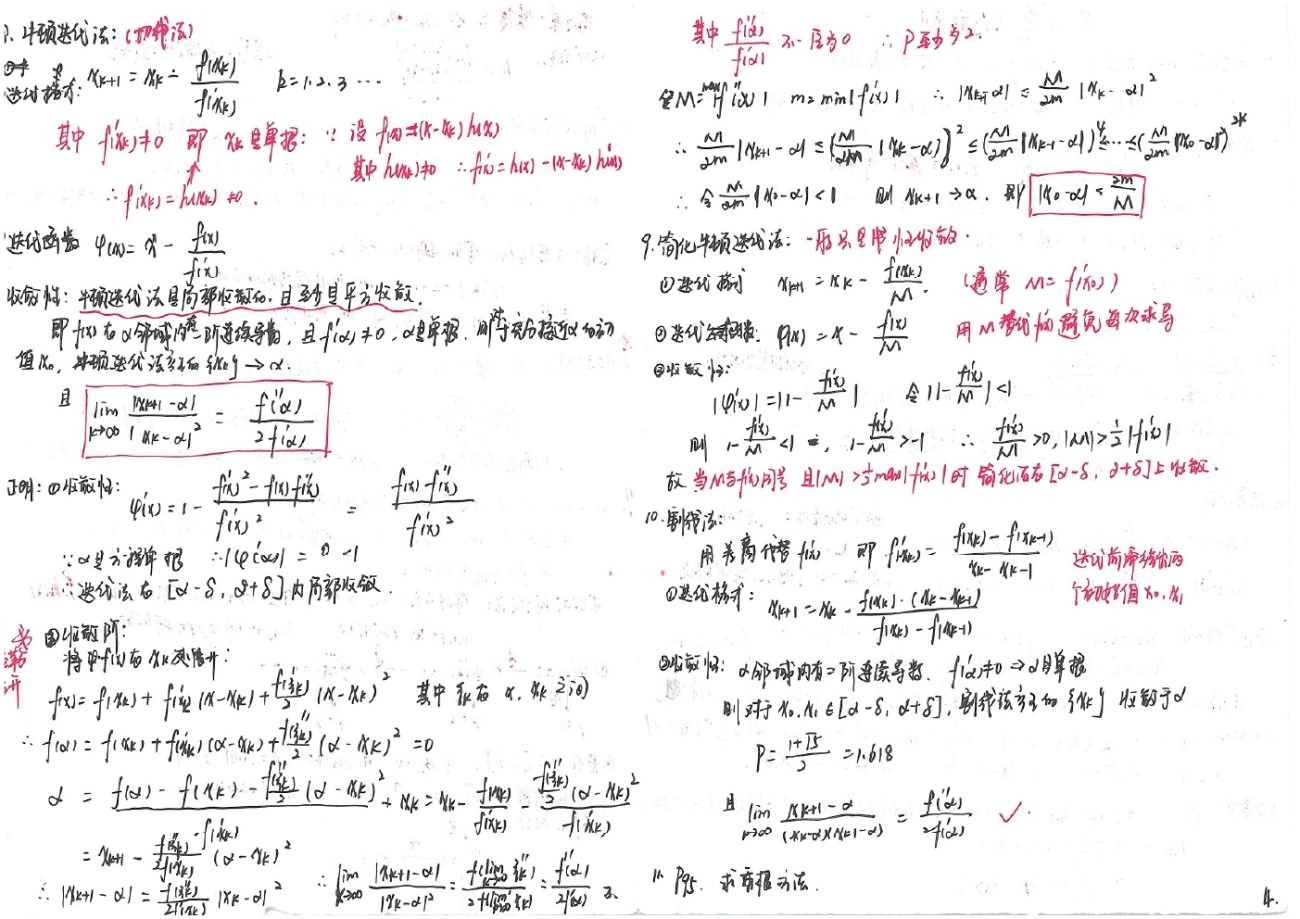 8. 牛顿迭代法: (切线法)
迭代格式: xₖ₊₁ = xₖ - f(xₖ)/f'(xₖ)  k=1.2.3 ···
其中 f'(xₖ)≠0 即 xₖ是单根: ∵ 设 f(x)=(x-xₖ)h(x)
其中 h(xₖ)≠0 ∴ f'(x)=h(x)-(x-xₖ)h'(x)
∴ f'(xₖ)=h(xₖ)≠0.
迭代函数 φ(x)= x - f(x)/f'(x)
收敛性: 牛顿迭代法是局部收敛的. 且至少是平方收敛.
即 f(x) 在 α邻域内有二阶连续导数, 且 f'(α)≠0, α是单根, 则对充分接近α的初
值x₀, 牛顿迭代法产生的 {xₖ} → α.
且 lim k→∞ |xₖ₊₁-α|/|xₖ-α|² = f''(α)/2f'(α)
证明: ①收敛性: φ'(x)= 1 - (f'(x)²-f(x)f''(x))/f'(x)² = f(x)f''(x)/f'(x)²
∵ α是方程单根 ∴ |φ'(α)| = 0 -1
∴ 迭代法在 [α-δ, α+δ] 内局部收敛.
②收敛阶:
泰勒展开
将 f(x)在 xₖ处展开:
f(x)= f(xₖ) + f'(xₖ)(x-xₖ) + f''(ξₖ)/2 (x-xₖ)² 其中 ξₖ在 α, xₖ之间
∴ f(α) = f(xₖ) + f'(xₖ)(α-xₖ) + f''(ξₖ)/2 (α-xₖ)² = 0
α = (f(α) - f(xₖ) - f''(ξₖ)/2 (α-xₖ)²)/f'(xₖ) + xₖ = xₖ - f(xₖ)/f'(xₖ) - f''(ξₖ)/2 (α-xₖ)²/f'(xₖ)
= xₖ₊₁ - f''(ξₖ)/2f'(xₖ) (α-xₖ)²
∴ |xₖ₊₁-α| = f''(ξₖ)/2f'(xₖ) |xₖ-α|² ∴ lim k→∞ |xₖ₊₁-α|/|xₖ-α|² = f''(lim k→∞ ξₖ)/2f'(lim k→∞ xₖ) = f''(α)/2f'(α)
其中 f''(α)/f'(α) 不一定为0 ∴ P至少为2.
令 M= max|f''(x)| m= min|f'(x)| ∴ |xₖ₊₁-α| ≤ M/2m |xₖ-α|²
∴ M/2m |xₖ₊₁-α| ≤ (M/2m |xₖ-α|)² ≤ (M/2m |xₖ₋₁-α|)⁴ ≤ ··· ≤ (M/2m |x₀-α|)^2k
∴ 令 M/2m |x₀-α| < 1 则 xₖ₊₁ → α. 即 |x₀-α| < 2m/M
9. 简化牛顿迭代法: 一般只是线性收敛.
①迭代格式 xₖ₊₁ = xₖ - f(xₖ)/M. (通常 M= f'(x₀))
②迭代函数: φ(x) = x - f(x)/M 用 M 替代 避免每次求导
③收敛性:
|φ'(x)| = |1 - f'(x)/M| 令 |1 - f'(x)/M| < 1
则 1 - f'(x)/M < 1, 1 - f'(x)/M > -1 ∴ f'(x)/M > 0, |M| > 1/2 |f'(x)|
故 当M与f'(x)同号 且|M| > 1/2 max|f'(x)| 时 简化法在 [α-δ, α+δ]上收敛.
10. 割线法:
用差商代替 f'(x) 即 f'(xₖ) = (f(xₖ)-f(xₖ₋₁))/(xₖ-xₖ₋₁) 迭代前需给出两
个初始值 x₀, x₁
①迭代格式: xₖ₊₁ = xₖ - f(xₖ)·(xₖ-xₖ₋₁)/(f(xₖ)-f(xₖ₋₁))
②收敛性: α邻域内有二阶连续导数. f'(α)≠0 ⇒ α是单根
则对于 x₀, x₁ ∈ [α-δ, α+δ], 割线法产生的 {xₖ} 收敛于α
P = (1+√5)/2 = 1.618
且 lim k→∞ (xₖ₊₁-α)/((xₖ-α)(xₖ₋₁-α)) = f''(α)/2f'(α) ✓
11. P95. 求重根方法.
4.